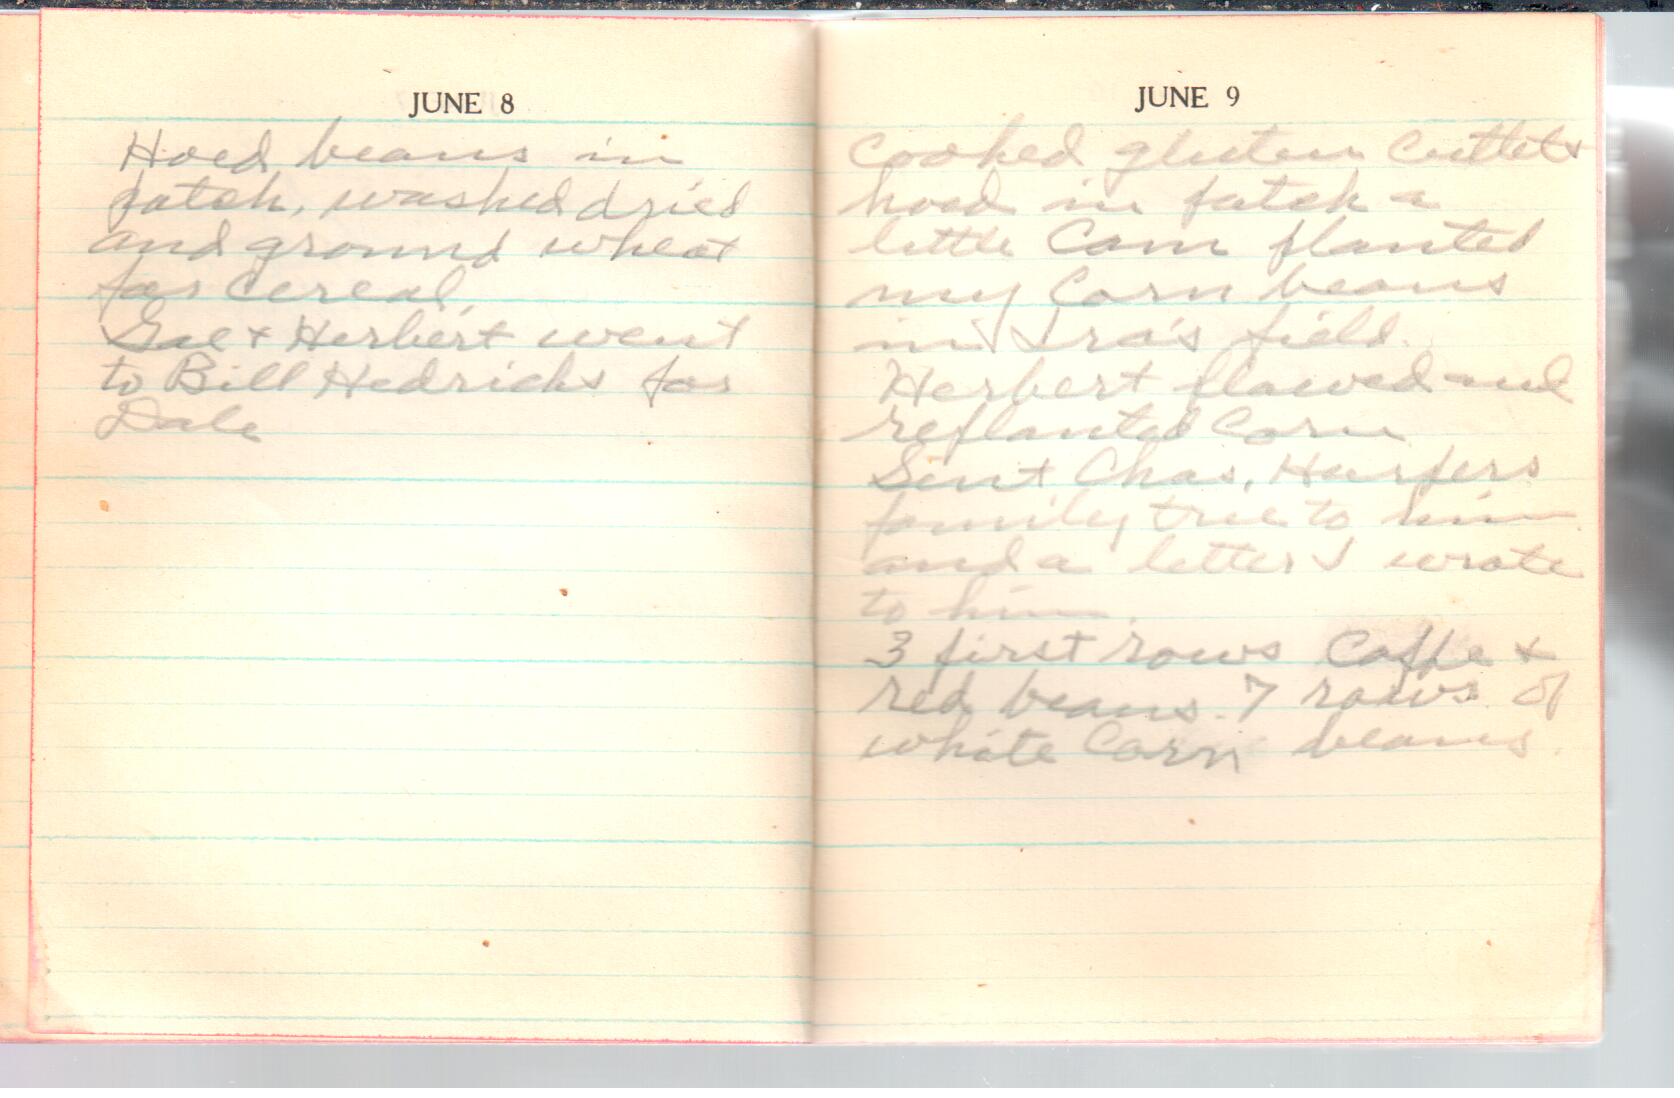 JUNE 8
Hoed beans in
patch, washed dried
and ground wheat
for cereal,
& Herbert went
to Bill Hedricks for
Dale
JUNE 9
Cooked gluten Cutlets
hoed in patch a
little Cam planted
my Corn beans
in Ira's field.
Herbert plowed and
replanted Corn
Sent Chas. Harpers
family tree to him
and a letter I wrote
to him.
3 first rows Coffe &
red beans. 7 rows of
white Corn beans.